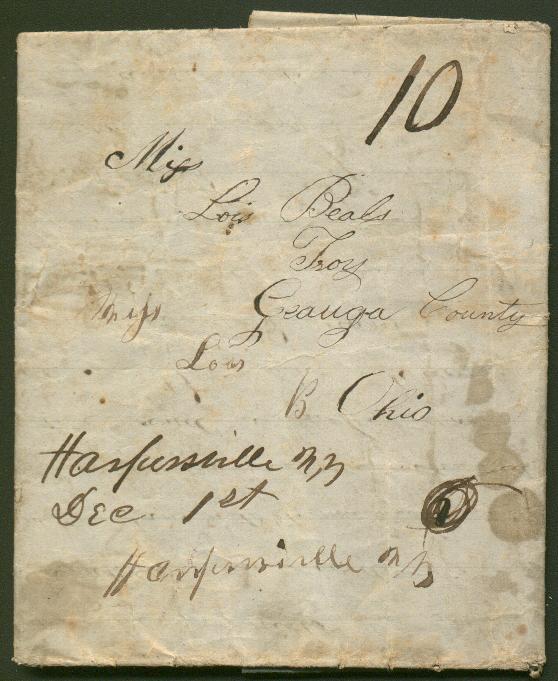 10
Miss
Lois Beals
Troy
Miss Geauga County
Lois
B Ohio
Harpersville N.Y
Dec 1st
Harpersville N Y